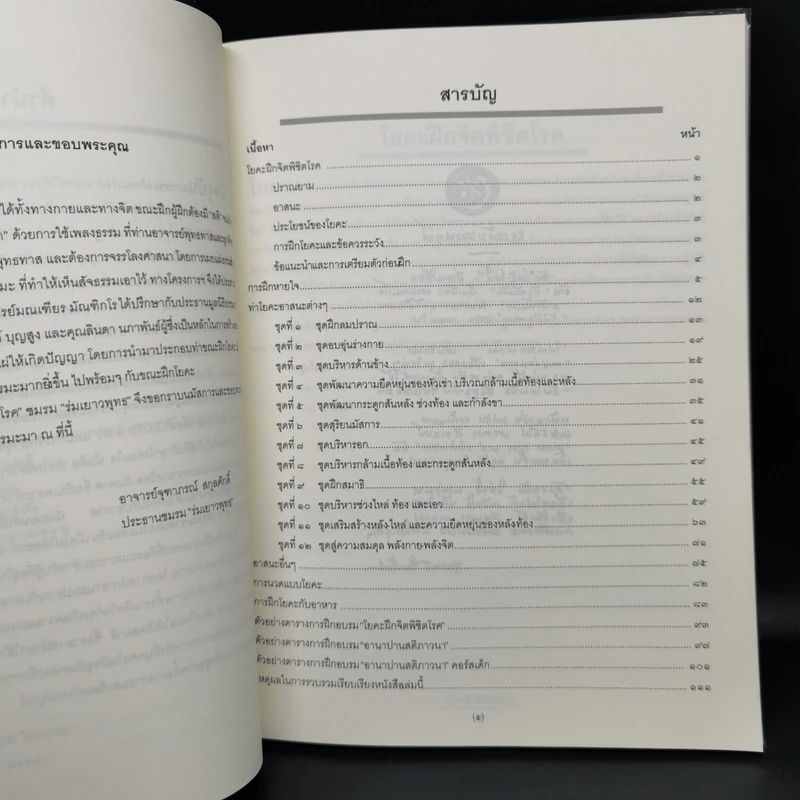 การและขอบพระคุณ
ได้ทั้งทางกายและทางจิต ขณะฝึกผู้ฝึกต้องมี
ด้วยการใช้เพลงธรรม ที่ท่านอาจารย์พุทธทาส
พุทธทาส และต้องการจรรโลงศาสนา
มะ ที่ทำให้เห็นสัจธรรมเอาไว้ ทางโครงการฯ
รย์มณเฑียร มัณฑิกโร ได้ปรึกษากับประธาน
บุญสูง และคุณลินดา นภาพันธ์ ผู้ซึ่งเป็นหลักในการ
ให้เกิดปัญญา โดยการนำมาประกอบท่าขณะฝึก
รมะมากยิ่งขึ้น ไปพร้อมๆ กับขณะฝึกโยคะ
โรค" ชมรม "ร่มเยาวพุทธ" จึงขอกราบนมัสการและ
รมะมา ณ ที่นี้
อาจารย์จุฑาภรณ์ สกุลศักดิ์
ประธานชมรม "ร่มเยาวพุทธ"
สารบัญ
เนื้อหา หน้า
โยคะฝึกจิตพิชิตโรค ๑
ปราณยาม ๒
อาสนะ ๒
ประโยชน์ของโยคะ ๓
การฝึกโยคะและข้อควรระวัง ๓
ข้อแนะนำและการเตรียมตัวก่อนฝึก ๔
การฝึกหายใจ ๕
ท่าโยคะอาสนะต่างๆ ๑๒
ชุดที่ ๑ ชุดฝึกลมปราณ ๑๓
ชุดที่ ๒ ชุดอบอุ่นร่างกาย ๑๙
ชุดที่ ๓ ชุดบริหารด้านข้าง ๒๕
ชุดที่ ๔ ชุดพัฒนาความยืดหยุ่นของหัวเข่า บริเวณกล้ามเนื้อท้องและหลัง ๓๑
ชุดที่ ๕ ชุดพัฒนากระดูกสันหลัง ช่วงท้อง และกำลังขา ๓๕
ชุดที่ ๖ ชุดสุริยนมัสการ ๔๑
ชุดที่ ๗ ชุดบริหารอก ๔๕
ชุดที่ ๘ ชุดบริหารกล้ามเนื้อท้อง และกระดูกสันหลัง ๔๙
ชุดที่ ๙ ชุดฝึกสมาธิ ๕๕
ชุดที่ ๑๐ ชุดบริหารช่วงไหล่ ท้อง และเอว ๕๙
ชุดที่ ๑๑ ชุดเสริมสร้างหลังไหล่ และความยืดหยุ่นของหลังท้อง ๖๓
ชุดที่ ๑๒ ชุดสู่ความสมดุล พลังกาย-พลังจิต ๗๑
อาสนะอื่นๆ ๗๕
การนวดแบบโยคะ ๘๒
การฝึกโยคะกับอาหาร ๘๓
ตัวอย่างตารางการฝึกอบรม "โยคะฝึกจิตพิชิตโรค" ๙๓
ตัวอย่างตารางการฝึกอบรม "อานาปานสติภาวนา" ๙๗
ตัวอย่างตารางการฝึกอบรม "อานาปานสติภาวนา" คอร์สเด็ก ๑๐๑
เหตุผลในการรวบรวมเรียบเรียงหนังสือเล่มนี้ ๑๑๑
(๕)